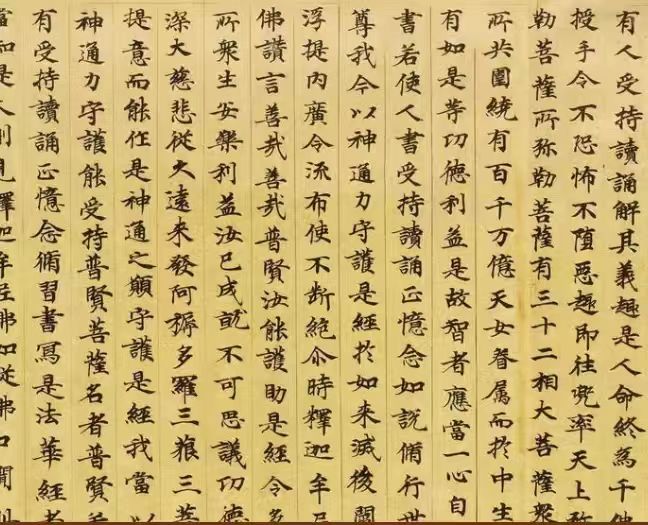 有人受持讀誦解其義趣是人命終為千
授手令不恐怖不墮惡趣即往兜率天上
勒菩薩所弥勒菩薩有三十二相大菩薩衆
所共圍繞有百千万億天女眷属而於中生
有如是等功德利益是故智者應當一心自
書若使人書受持讀誦正憶念如説脩行世
尊我今以神通力守護是經於如来滅後閻
浮提内廣令流布使不斷絶尒時釋迦牟尼
佛讃言善㦲善㦲普賢汝能護助是經令多
所衆生安樂利益汝已成就不可思議功德
深大慈悲従久遠来發阿耨多羅三藐三菩
提意而能作是神通之願守護是經我當以
神通力守護能受持普賢菩薩名者普賢若
有受持讀誦正憶念脩習書寫是法華經者
當知是人則見釋迦牟尼佛如従佛口聞